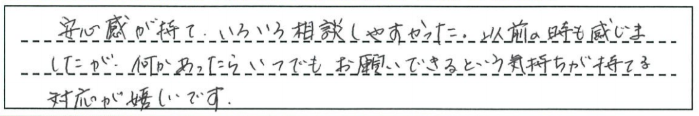 安心感が持て、いろいろ相談しやすかった。以前の時も感じま
したが、何かあったらいつでもお願いできるという気持ちが持てる
対応が嬉しいです。